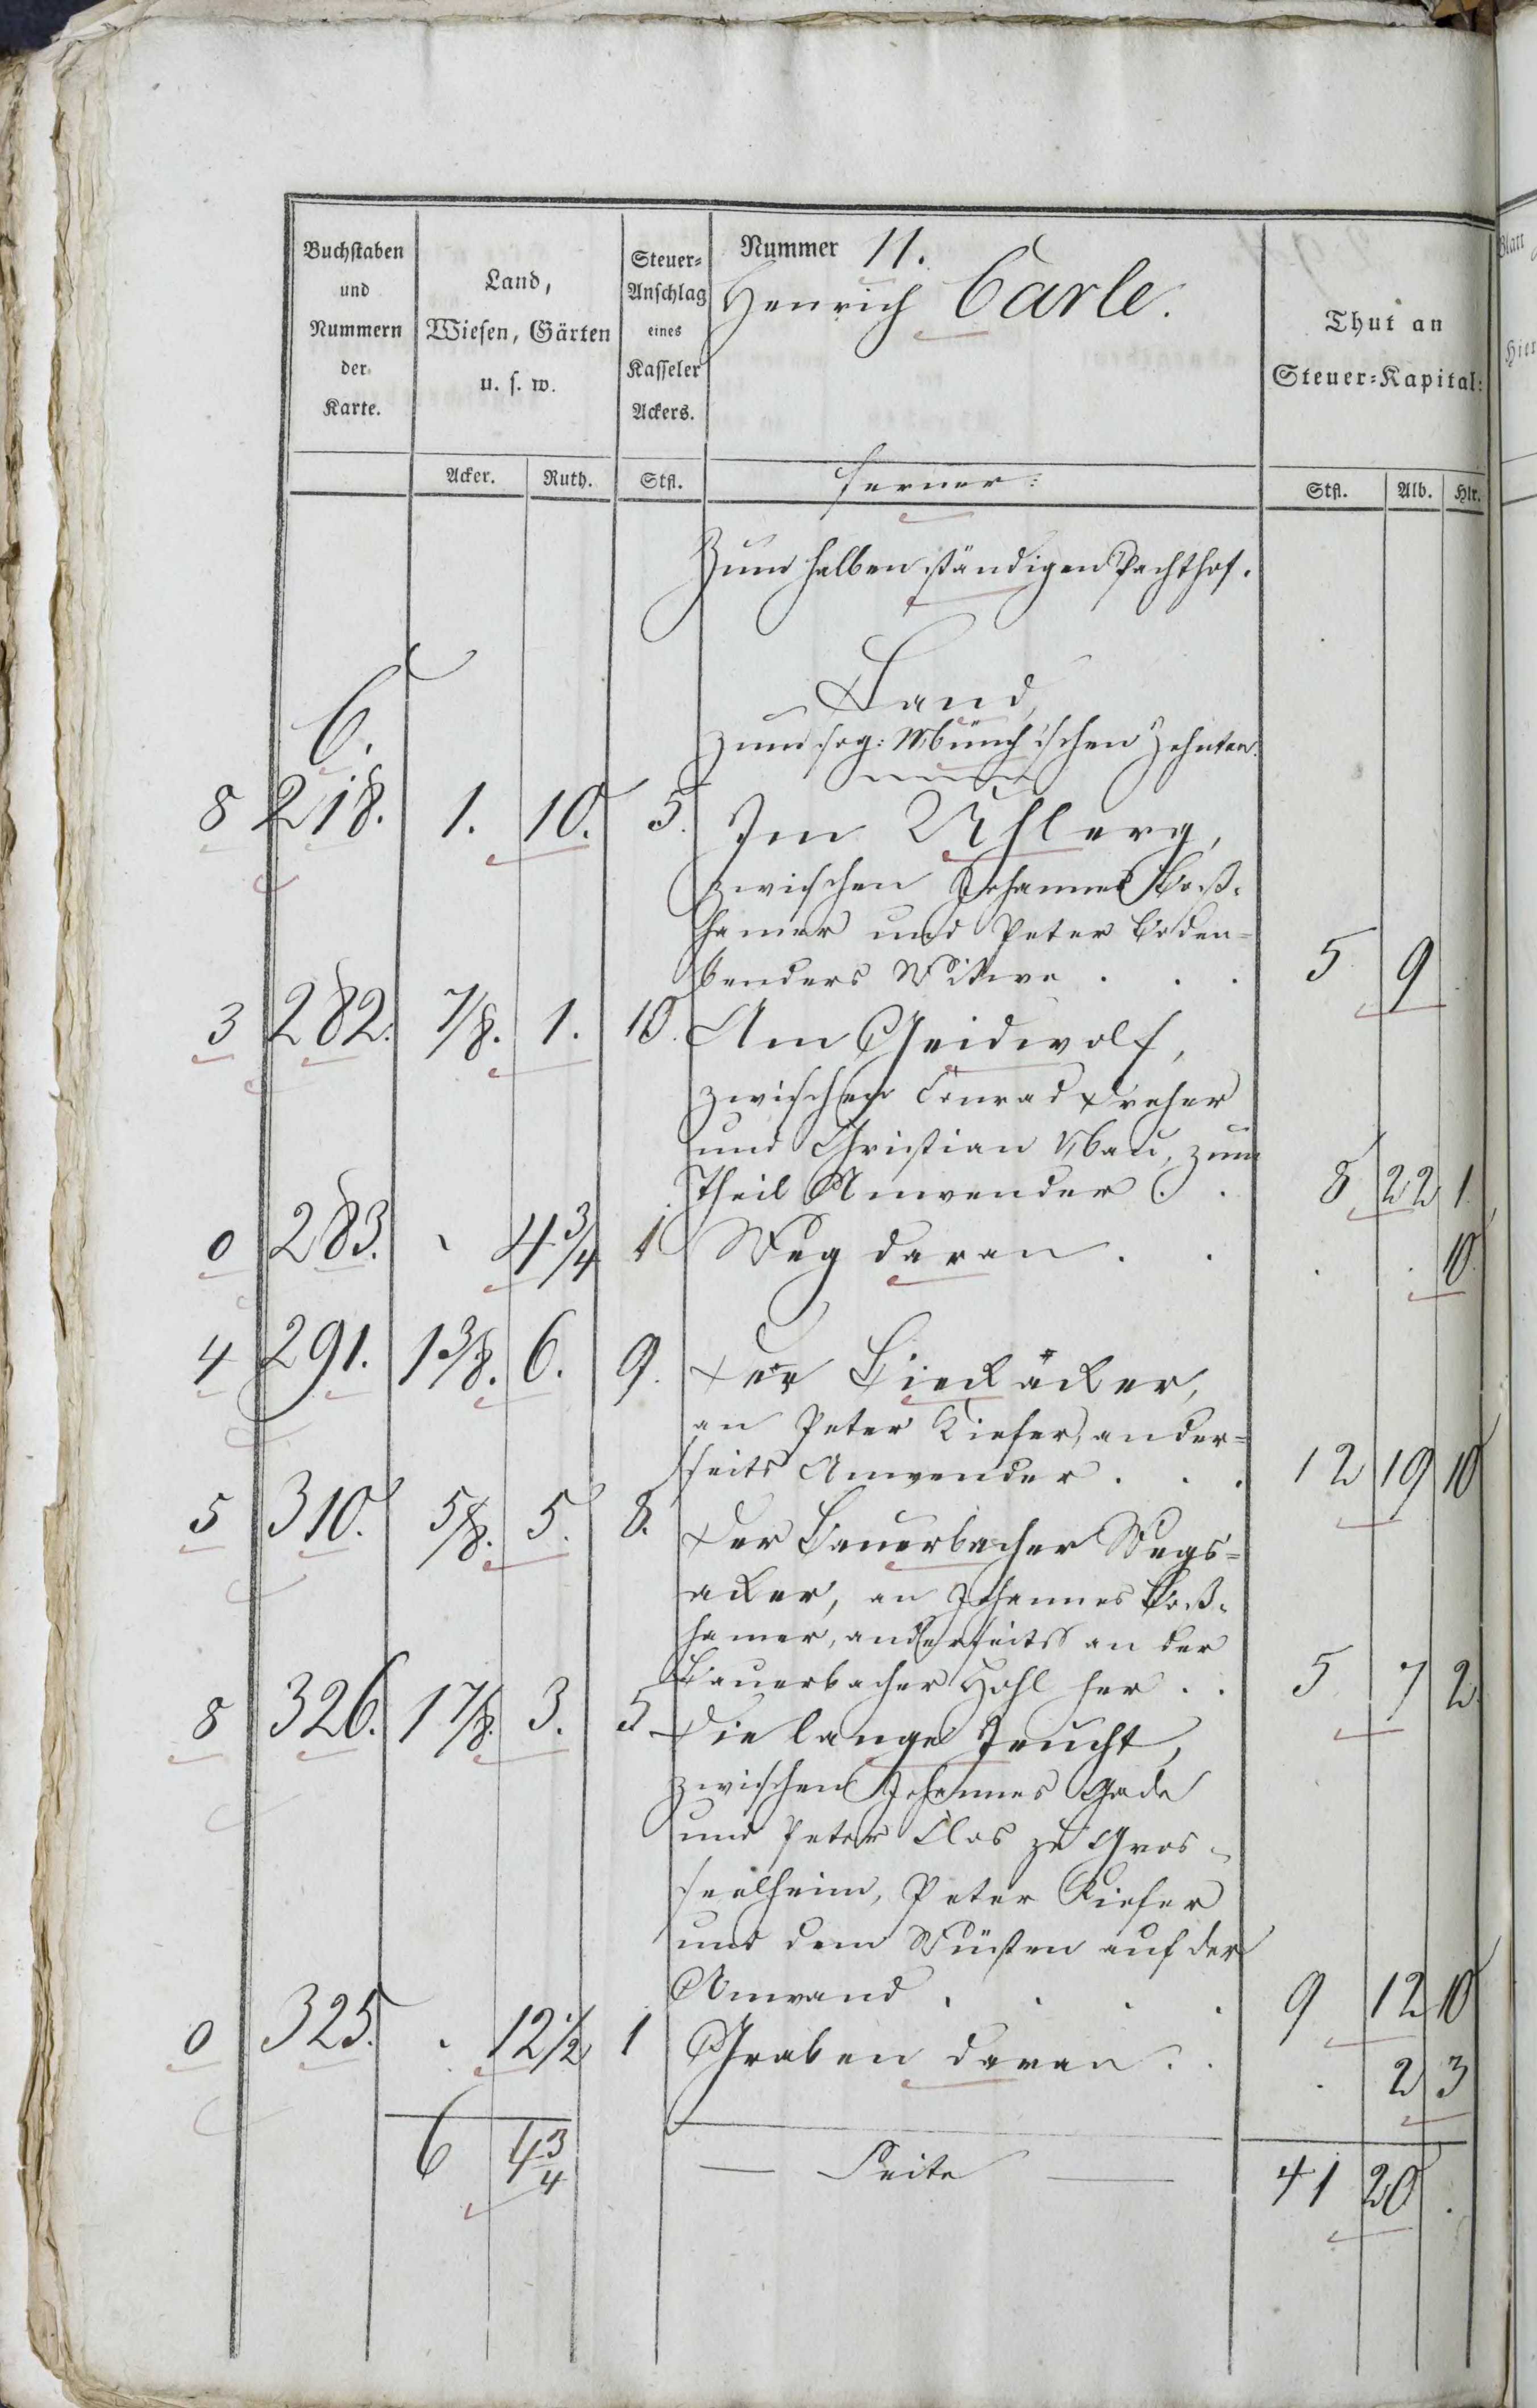 Buchstaben und Nummern der Karte.
Land, Wiesen, Gärten u. s. w.
Steuer-Anschlag eines Kasseler Ackers.
Nummer 11.
Henrich Carle.
Thut an Steuer-Kapital:
Acker. Ruth. Stfl. ferner: Stfl. Alb. Hlr.
Zum halben ständigen Pachthof.
C.
Land,
zum sog: Münch'schen Zehnten.
8 218. 1. 10. 5. Im
zwischen Johannes Boß-
hamer und Peter Boden=
benders Witwe . . . 5 9
3 282. 7/8. 1. 10. Am Geidwolf,
zwischen Conrad Dreher
und Christian Nau, zum
Theil Anwender . . 8 22 1
0 283. 4 3/4 1 Weg daran . . . . 10.
4 291. 1 3/8. 6. 9. Der äcker,
an Peter Kiefer, ander=
seits Anwender . . . 12 19 10
5 310. 5/8. 5. 8. Der Bauerbacher Wegs=
acker, an Johannes Boß-
hamer, anderseits an der
Bauerbacher Hohl her . . 5 7 2
8 326. 1 7/8. 3. 5 Die lange
zwischen Johannes Gade
und Peter Clos zu Gros-
seelheim, Peter Kiefer
und dem Wüsten auf der
Anwand . . . . 9 12 10
0 325. . 12 1/2 1 Graben daran . . . 2 3
6 4 3/4 — Seite — 41 20 .
Blatt
Hier